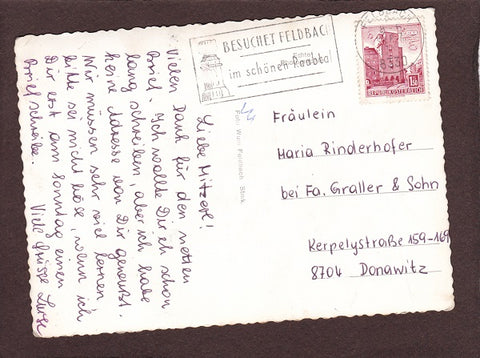 BESUCHET FELDBACH
im schönen Raabtal
REPUBLIK ÖSTERREICH
Liebe Mitzerl!
Vielen Dank für den netten
Brief. Ich wollte Dir eh schon
lang schreiben, aber ich habe
keine Adresse von Dir gewußt.
Wir müssen sehr viel lernen
bitte sei nicht böse, wenn ich
Dir erst am Sonntag einen
Brief schreibe. Viele Grüsse Luise
Fräulein
Maria Rinderhofer
bei Fa. Graller & Sohn
Kerpelystraße 159-169
8704 Donawitz